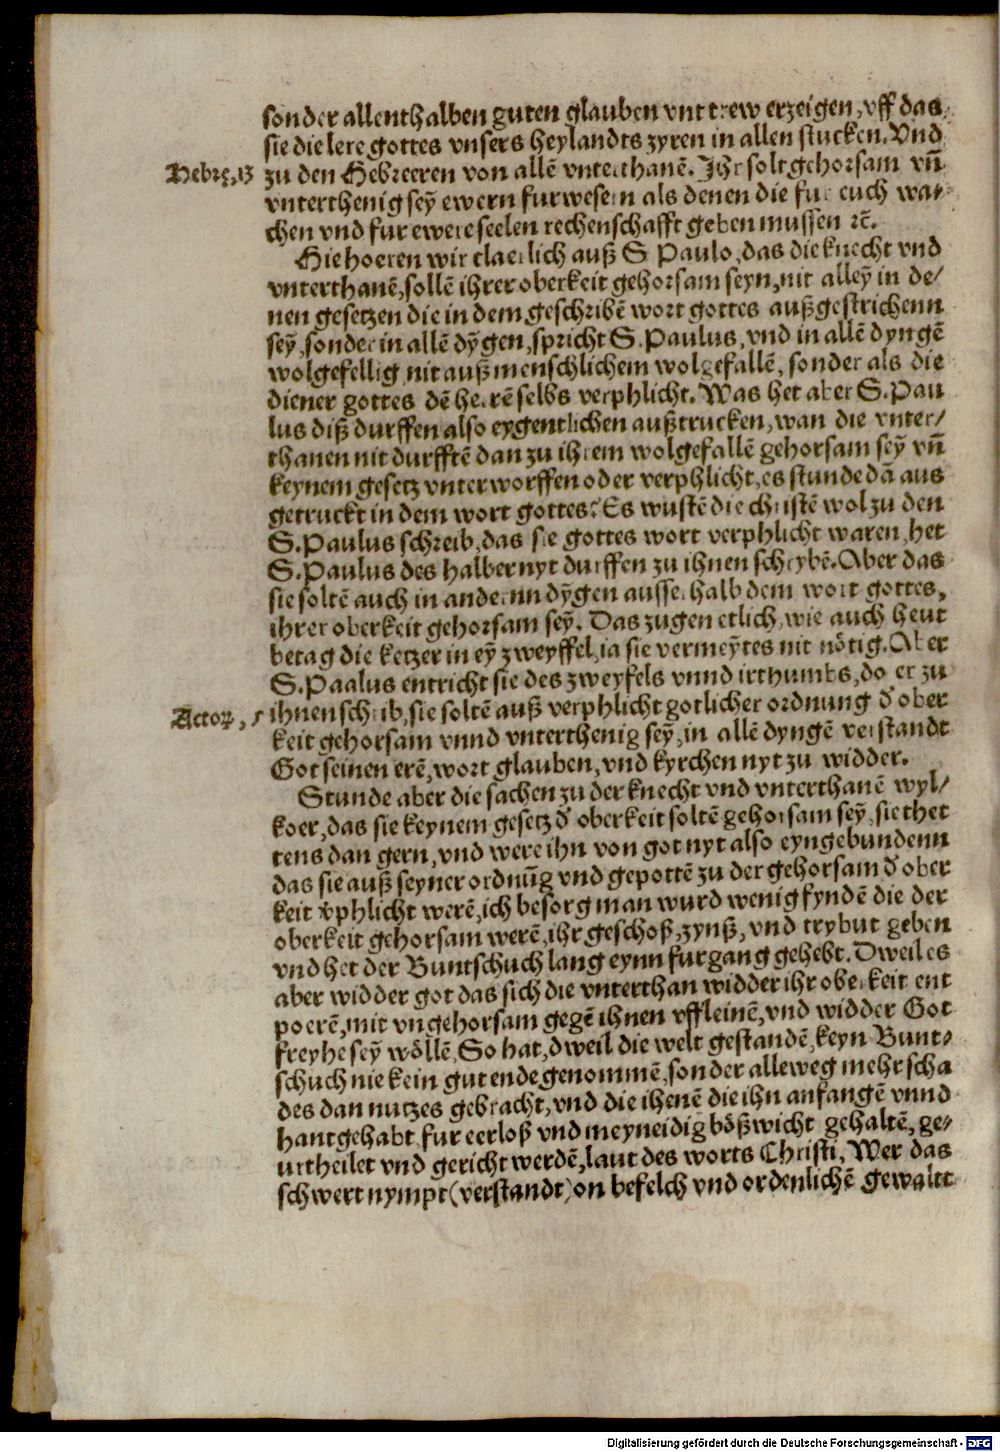 sonder allenthalben guten glauben vnt trew erzeigen, vff das
sie die lere gottes vnsers heylandts zyren in allen stucken. Vnd
Hebrę, 13 zu den Hebreeren von allē vnterthanē. Ihr solt gehorsam vn̄
vnterthenig seȳ ewern furwesern als denen die fur euch wa⸗
chen vnd fur ewere seelen rechenschafft geben mussen ꝛc̄.
Hie hoeren wir claerlich auß S Paulo, das die knecht vnd
vnterthanē, sollē ihrer oberkeit gehorsam seyn, nit alleȳ in de/
nen gesetzen die in dem geschribē wort gottes außgestrichenn
seȳ, sonder in allē dȳgen, spricht S. Paulus, vnd in allē dyngē
wolgefellig nit auß menschlichem wolgefallē, sonder als die
diener gottes dē herrē selbs verphlicht. Was het aber S. Pau
lus diß durffen also eygentlichen außtrucken, wan die vnter/
thanen nit durfftē dan zu ihrem wolgefallē gehorsam seȳ vn̄
keynem gesetz vnterworffen oder verphlicht, es stunde dā aus
getruckt in dem wort gottes? Es wustē die christē wol zu den
S. Paulus schreib, das sie gottes wort verphlicht waren, het
S. Paulus des halber nyt durffen zu ihnen schrybē. Aber das
sie soltē auch in andernn dȳgen ausserhalb dem wort gottes,
ihrer oberkeit gehorsam seȳ. Das zugen etlich, wie auch heut
betag die ketzer in eȳ zweyffel, ia sie vermeȳtes nit nötig. Aber
S. Paalus entricht sie des zweyfels vnnd irthumbs, do er zu
Actoꝝ, 5 ihnen schrib, sie soltē auß verphlicht gotlicher ordnung d̕ ober
keit gehorsam vnnd vnterthenig seȳ, in allē dyngē verstandt
Got seinen erē, wort glauben, vnd kyrchen nyt zu widder.
Stunde aber die sachen zu der knecht vnd vnterthanē wyl/
koer, das sie keynem gesetz d̕ oberkeit soltē gehorsam seȳ, sie thet
tens dan gern, vnd were ihn von got nyt also eyngebundenn
das sie auß seyner ordnūg vnd gepottē zu der gehorsam d̕ ober
keit v̕phlicht werē, ich besorg man wurd wenig fyndē die der
oberkeit gehorsam werē, ihr geschoß, zynß, vnd trybut geben
vnd het der Buntschuch lang eynn furgang gehebt. Dweil es
aber widder got das sich die vnterthan widder ihr oberkeit ent
poerē, mit vngehorsam gegē ihnen vffleinē, vnd widder Got
freyhe seȳ wöllē, So hat, dweil die welt gestandē, keyn Bunt⸗
schuch nie kein gut ende genommē, sonder alleweg mehr scha
des dan nutzes gebracht, vnd die ihenē die ihn anfangē vnnd
hantgehabt fur eerloß vnd meyneidig bößwicht gehaltē, ge⸗
urtheilet vnd gericht werdē, laut des worts Christi, Wer das
schwert nympt (verstandt) on befelch vnd ordenlichē gewaltt
Digitalisierung gefördert durch die Deutsche Forschungsgemeinschaft - DFG